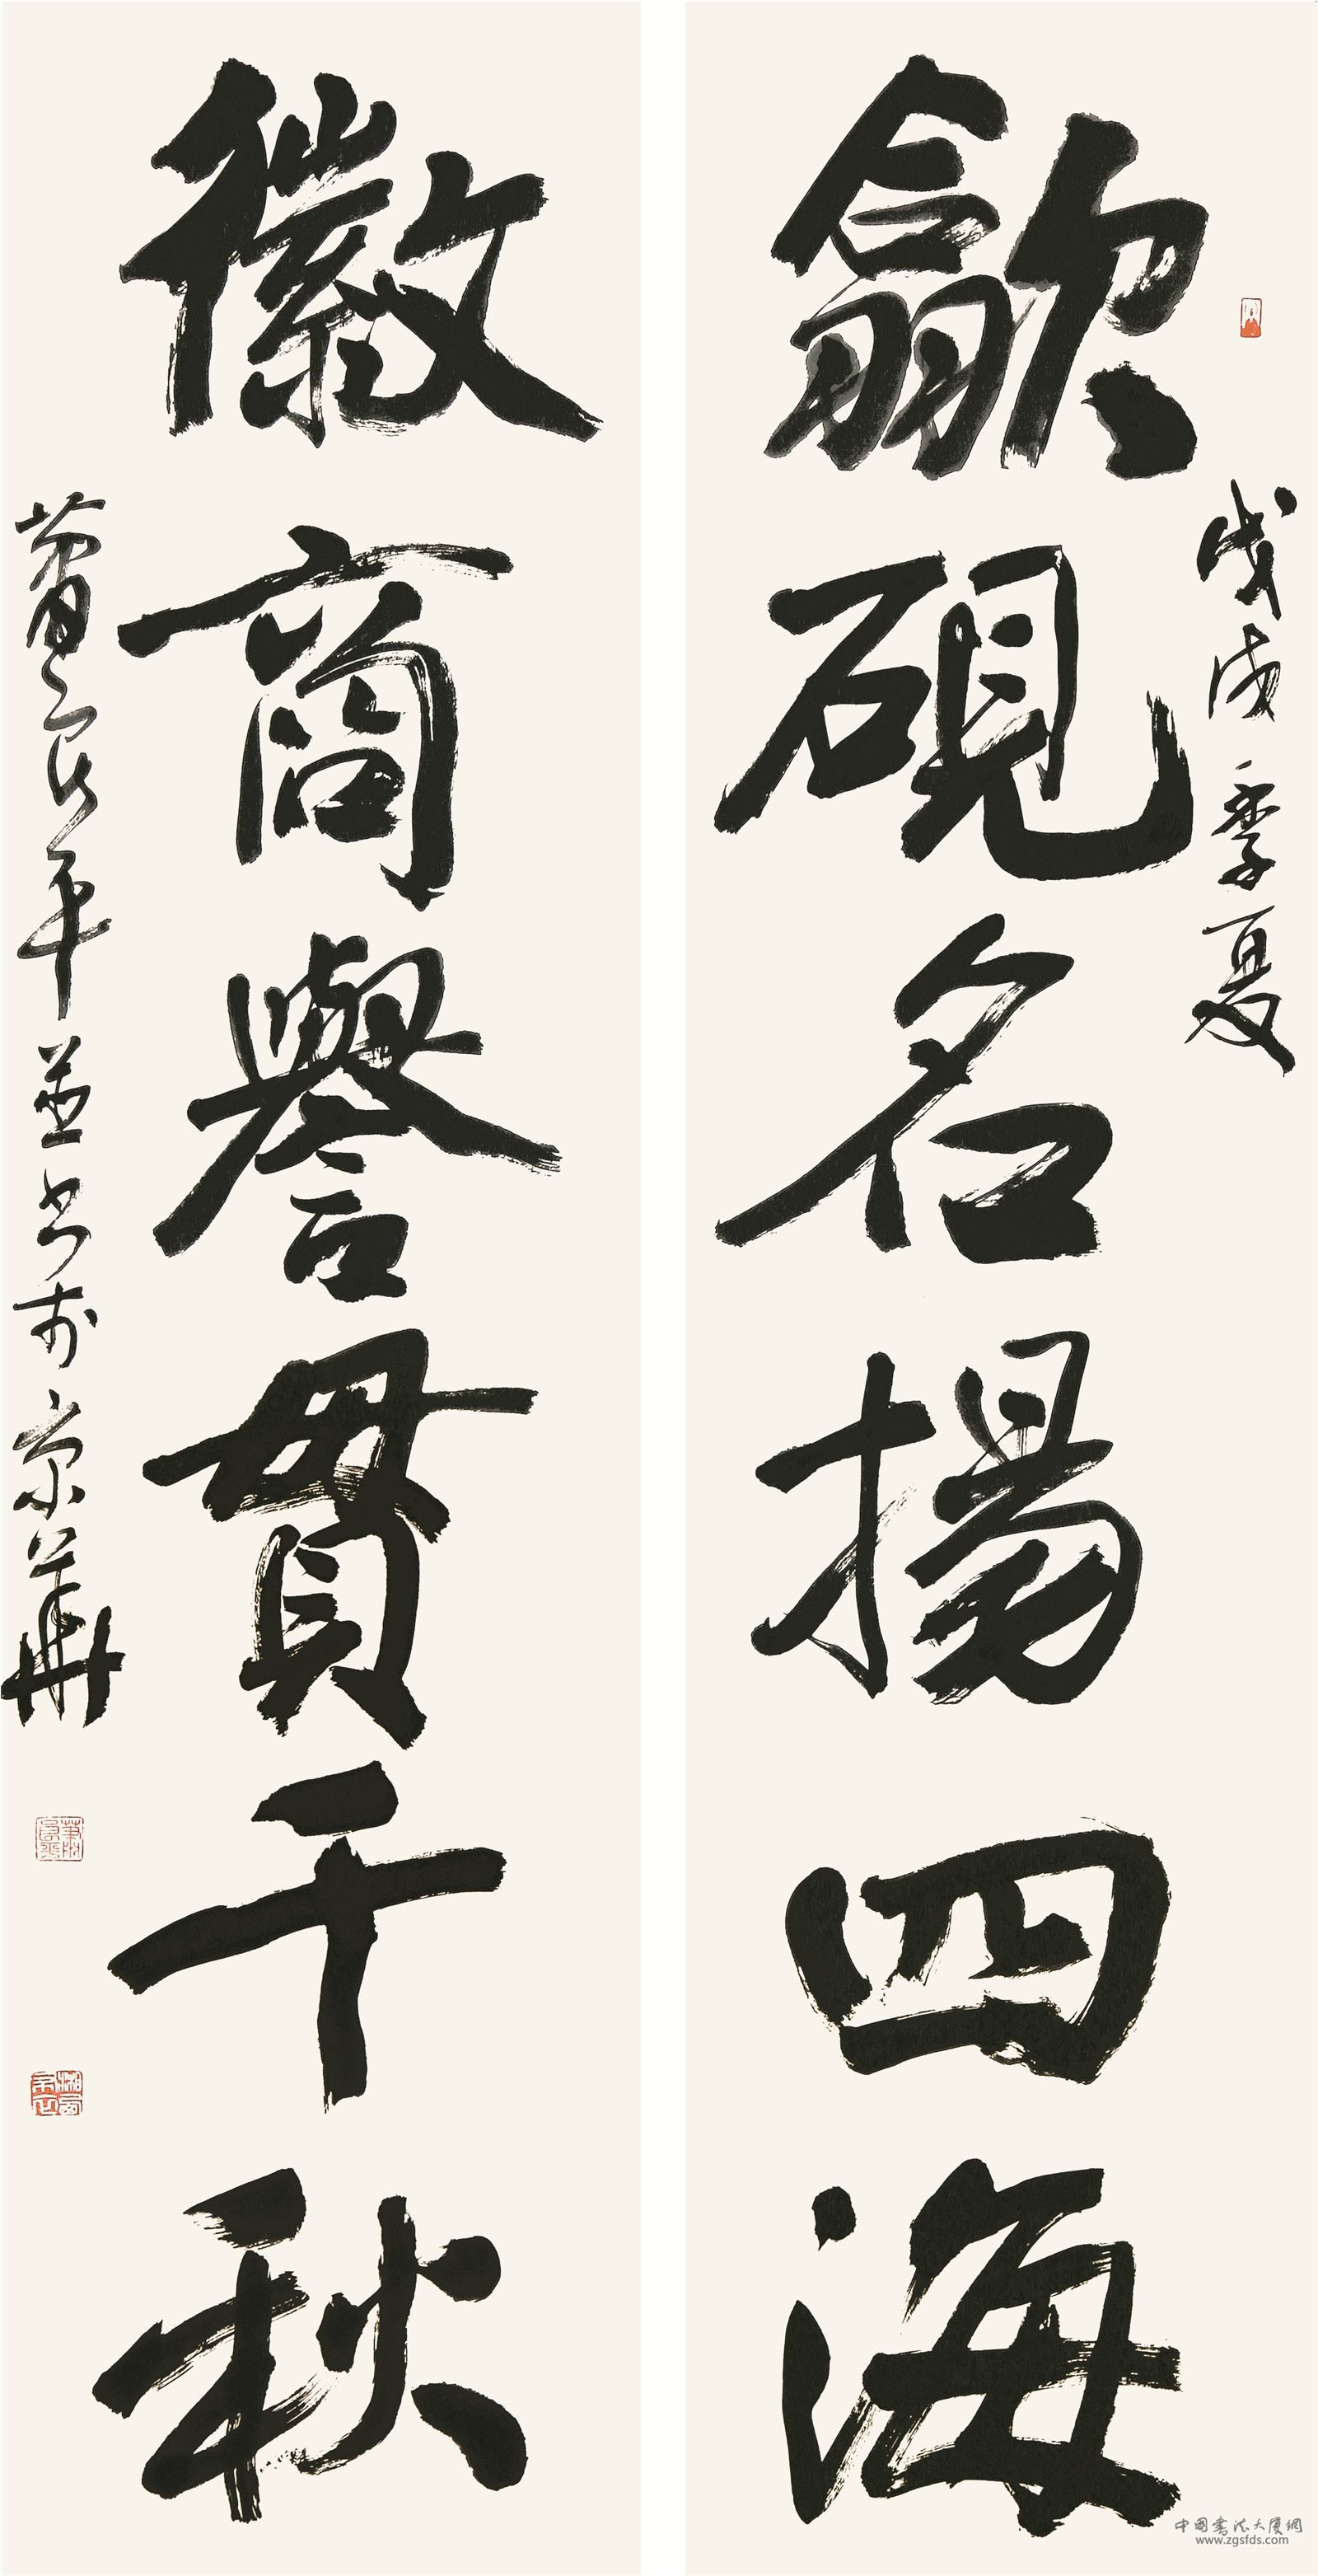 歙硯名揚四海
戊戌季夏
徽商譽貫千秋
並書於京華
中國書法大厦網
www.zgsfds.com